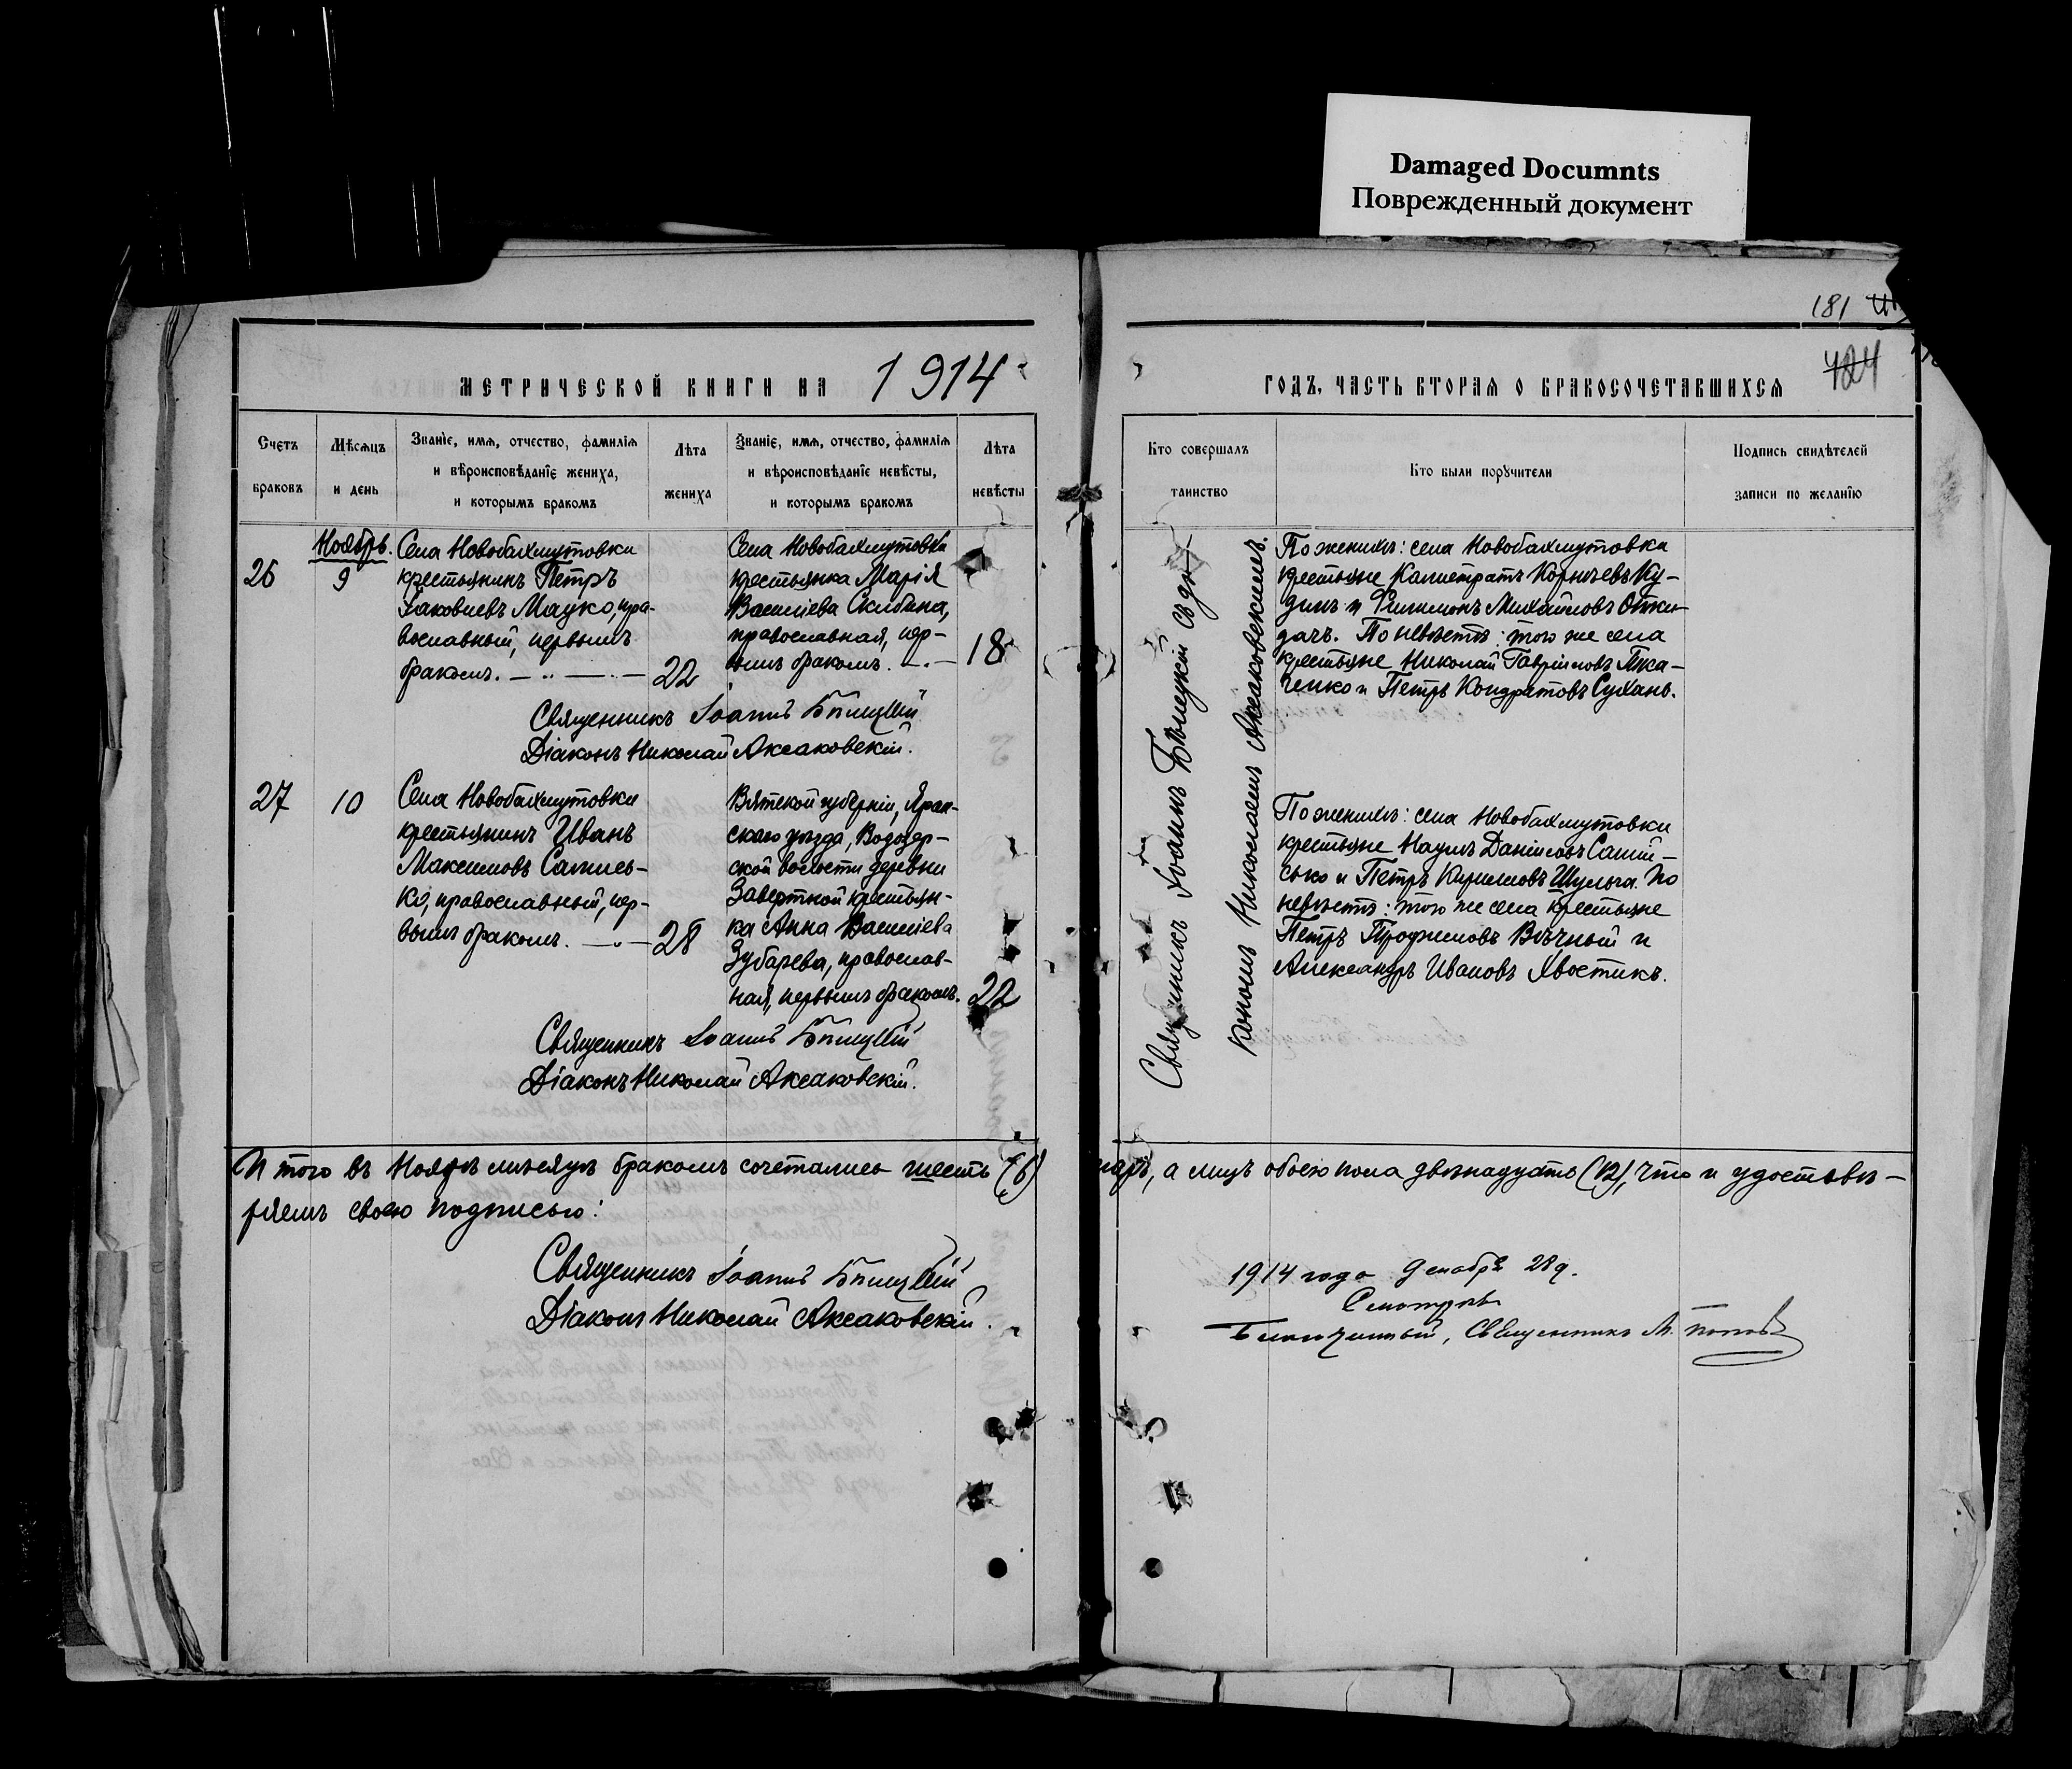 Damaged Documnts
Поврежденный документ
181
424
МЕТРИЧЕСКОЙ КНИГИ НА 1914
ГОДЪ, ЧАСТЬ ВТОРАЯ О БРАКОСОЧЕТАВШИХСЯ
Счетъ
браковъ
Мѣсяцъ
и день
Званіе, имя, отчество, фамилія
и вѣроисповѣданіе жениха,
и которымъ бракомъ
Лѣта
жениха
Званіе, имя, отчество, фамилія
и вѣроисповѣданіе невѣсты,
и которымъ бракомъ
Лѣта
невѣсты
Кто совершалъ
таинство
Кто были поручители
Подпись свидѣтелей
записи по желанію
26
Ноябрь.
9
Села Новобахмутовки
крестьянинъ Петръ
Іаковлевъ Мацко, пра-
вославный, первымъ
бракомъ.
22
Села Новобахмутовки
крестьянка Марія
Василіева Скибина,
православная, пер-
вымъ бракомъ.
18
Священникъ Іоаннъ Бѣлицкій
Діаконъ Николай Аксаковскій.
Священникъ Іоаннъ Бѣлицкій съ діа-
кономъ Николаемъ Аксаковскимъ.
По женихѣ: села Новобахмутовки
крестьяне Калистратъ Корніевъ Ку-
динъ и Филимонъ Михайловъ Отки-
дачъ. По невѣстѣ: того же села
крестьяне Николай Гавріиловъ Тка-
ченко и Петръ Кондратовъ Сухань.
27
10
Села Новобахмутовки
крестьянинъ Иванъ
Максимовъ Самись-
ко, православный, пер-
вымъ бракомъ.
28
Вятской губерніи, Яран-
скаго уѣзда, Водозер-
ской волости деревни
Завертной крестьян-
ка Анна Василіева
Зубарева, православ-
ная, первымъ бракомъ.
22
Священникъ Іоаннъ Бѣлицкій
Діаконъ Николай Аксаковскій.
По женихѣ: села Новобахмутовки
крестьяне Наумъ Даніиловъ Самій-
сько и Петръ Кирилловъ Шульга. По
невѣстѣ: того же села крестьяне
Петръ Трофимовъ Вѣчный и
Александръ Ивановъ Хвостикъ.
Итого въ Ноябрѣ мѣсяцѣ бракомъ сочетались шесть (6) паръ, а лицъ обоего пола двѣнадцать (12), что и удостовѣ-
ряемъ своею подписью:
Священникъ Іоаннъ Бѣлицкій
Діаконъ Николай Аксаковскій.
1914 года Декабря 28 д.
Смотрѣлъ
Благочинный, Священникъ М. Поповъ